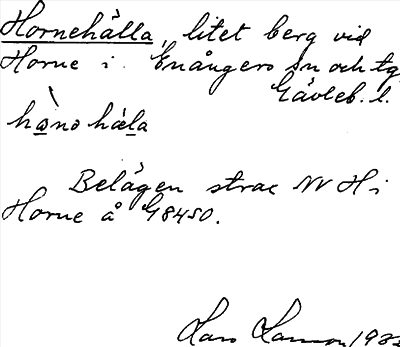 Hornehälla, litet berg vid
Horne i Enångers sn och tg
Gävleb. l.
hɷnəhäla
Belägen strax NV H i
Horne å G8450.
Lars Larsson, 193